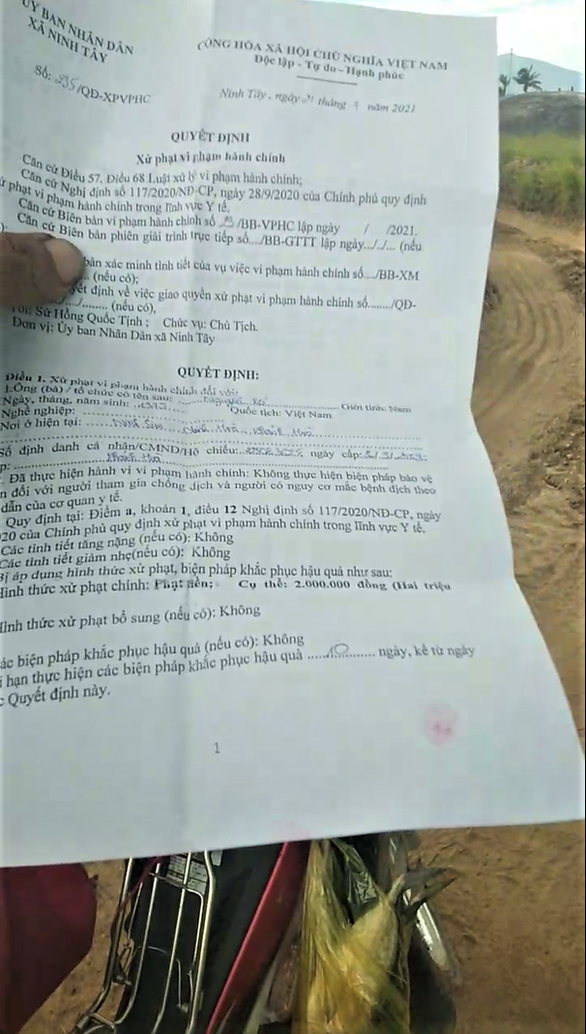 ỦY BAN NHÂN DÂN
XÃ NINH TÂY
CỘNG HÒA XÃ HỘI CHỦ NGHĨA VIỆT NAM
Độc lập - Tự do - Hạnh phúc
Số: 535/QĐ-XPVPHC
Ninh Tây, ngày tháng năm 2021
QUYẾT ĐỊNH
Xử phạt vi phạm hành chính
Căn cứ Điều 57, Điều 68 Luật xử lý vi phạm hành chính;
Căn cứ Nghị định số 117/2020/NĐ-CP, ngày 28/9/2020 của Chính phủ quy định
phạt vi phạm hành chính trong lĩnh vực Y tế.
Căn cứ Biên bản vi phạm hành chính số /BB-VPHC lập ngày / /2021.
Căn cứ Biên bản phiên giải trình trực tiếp số..../BB-GTTT lập ngày.../.../... (nếu
):
bản xác minh tình tiết của vụ việc vi phạm hành chính số..../BB-XM
.. (nếu có);
định về việc giao quyền xử phạt vi phạm hành chính số......../QĐ-
..../........ (nếu có),
Tôi: Sử Hồng Quốc Tịnh ; Chức vụ: Chủ Tịch.
Đơn vị: Ủy ban Nhân Dân xã Ninh Tây
QUYẾT ĐỊNH:
Điều 1. Xử phạt vi phạm hành chính đối với:
1.Ông (bà) / tổ chức có tên sau: Giới tính: Nam
Ngày, tháng, năm sinh: Quốc tịch: Việt Nam
Nghề nghiệp:
Nơi ở hiện tại:
Số định danh cá nhân/CMND/Hộ chiếu: ngày cấp:
p:
Đã thực hiện hành vi vi phạm hành chính: Không thực hiện biện pháp bảo vệ
n đối với người tham gia chống dịch và người có nguy cơ mắc bệnh dịch theo
dẫn của cơ quan y tế.
Quy định tại: Điểm a, khoản 1, điều 12 Nghị định số 117/2020/NĐ-CP, ngày
20 của Chính phủ quy định xử phạt vi phạm hành chính trong lĩnh vực Y tế.
Các tình tiết tăng nặng (nếu có): Không
Các tình tiết giảm nhẹ(nếu có): Không
Bị áp dụng hình thức xử phạt, biện pháp khắc phục hậu quả như sau:
Hình thức xử phạt chính: Phạt tiền; Cụ thể: 2.000.000 đồng (Hai triệu
Hình thức xử phạt bổ sung (nếu có): Không
ác biện pháp khắc phục hậu quả (nếu có): Không
i hạn thực hiện các biện pháp khắc phục hậu quả ......10........ ngày, kể từ ngày
c Quyết định này.
1